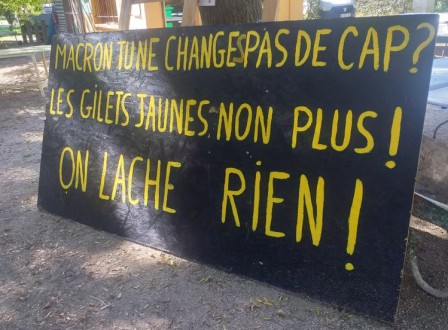 MACRON TU NE CHANGES PAS DE CAP?
LES GILETS JAUNES, NON PLUS!
ON LACHE RIEN!